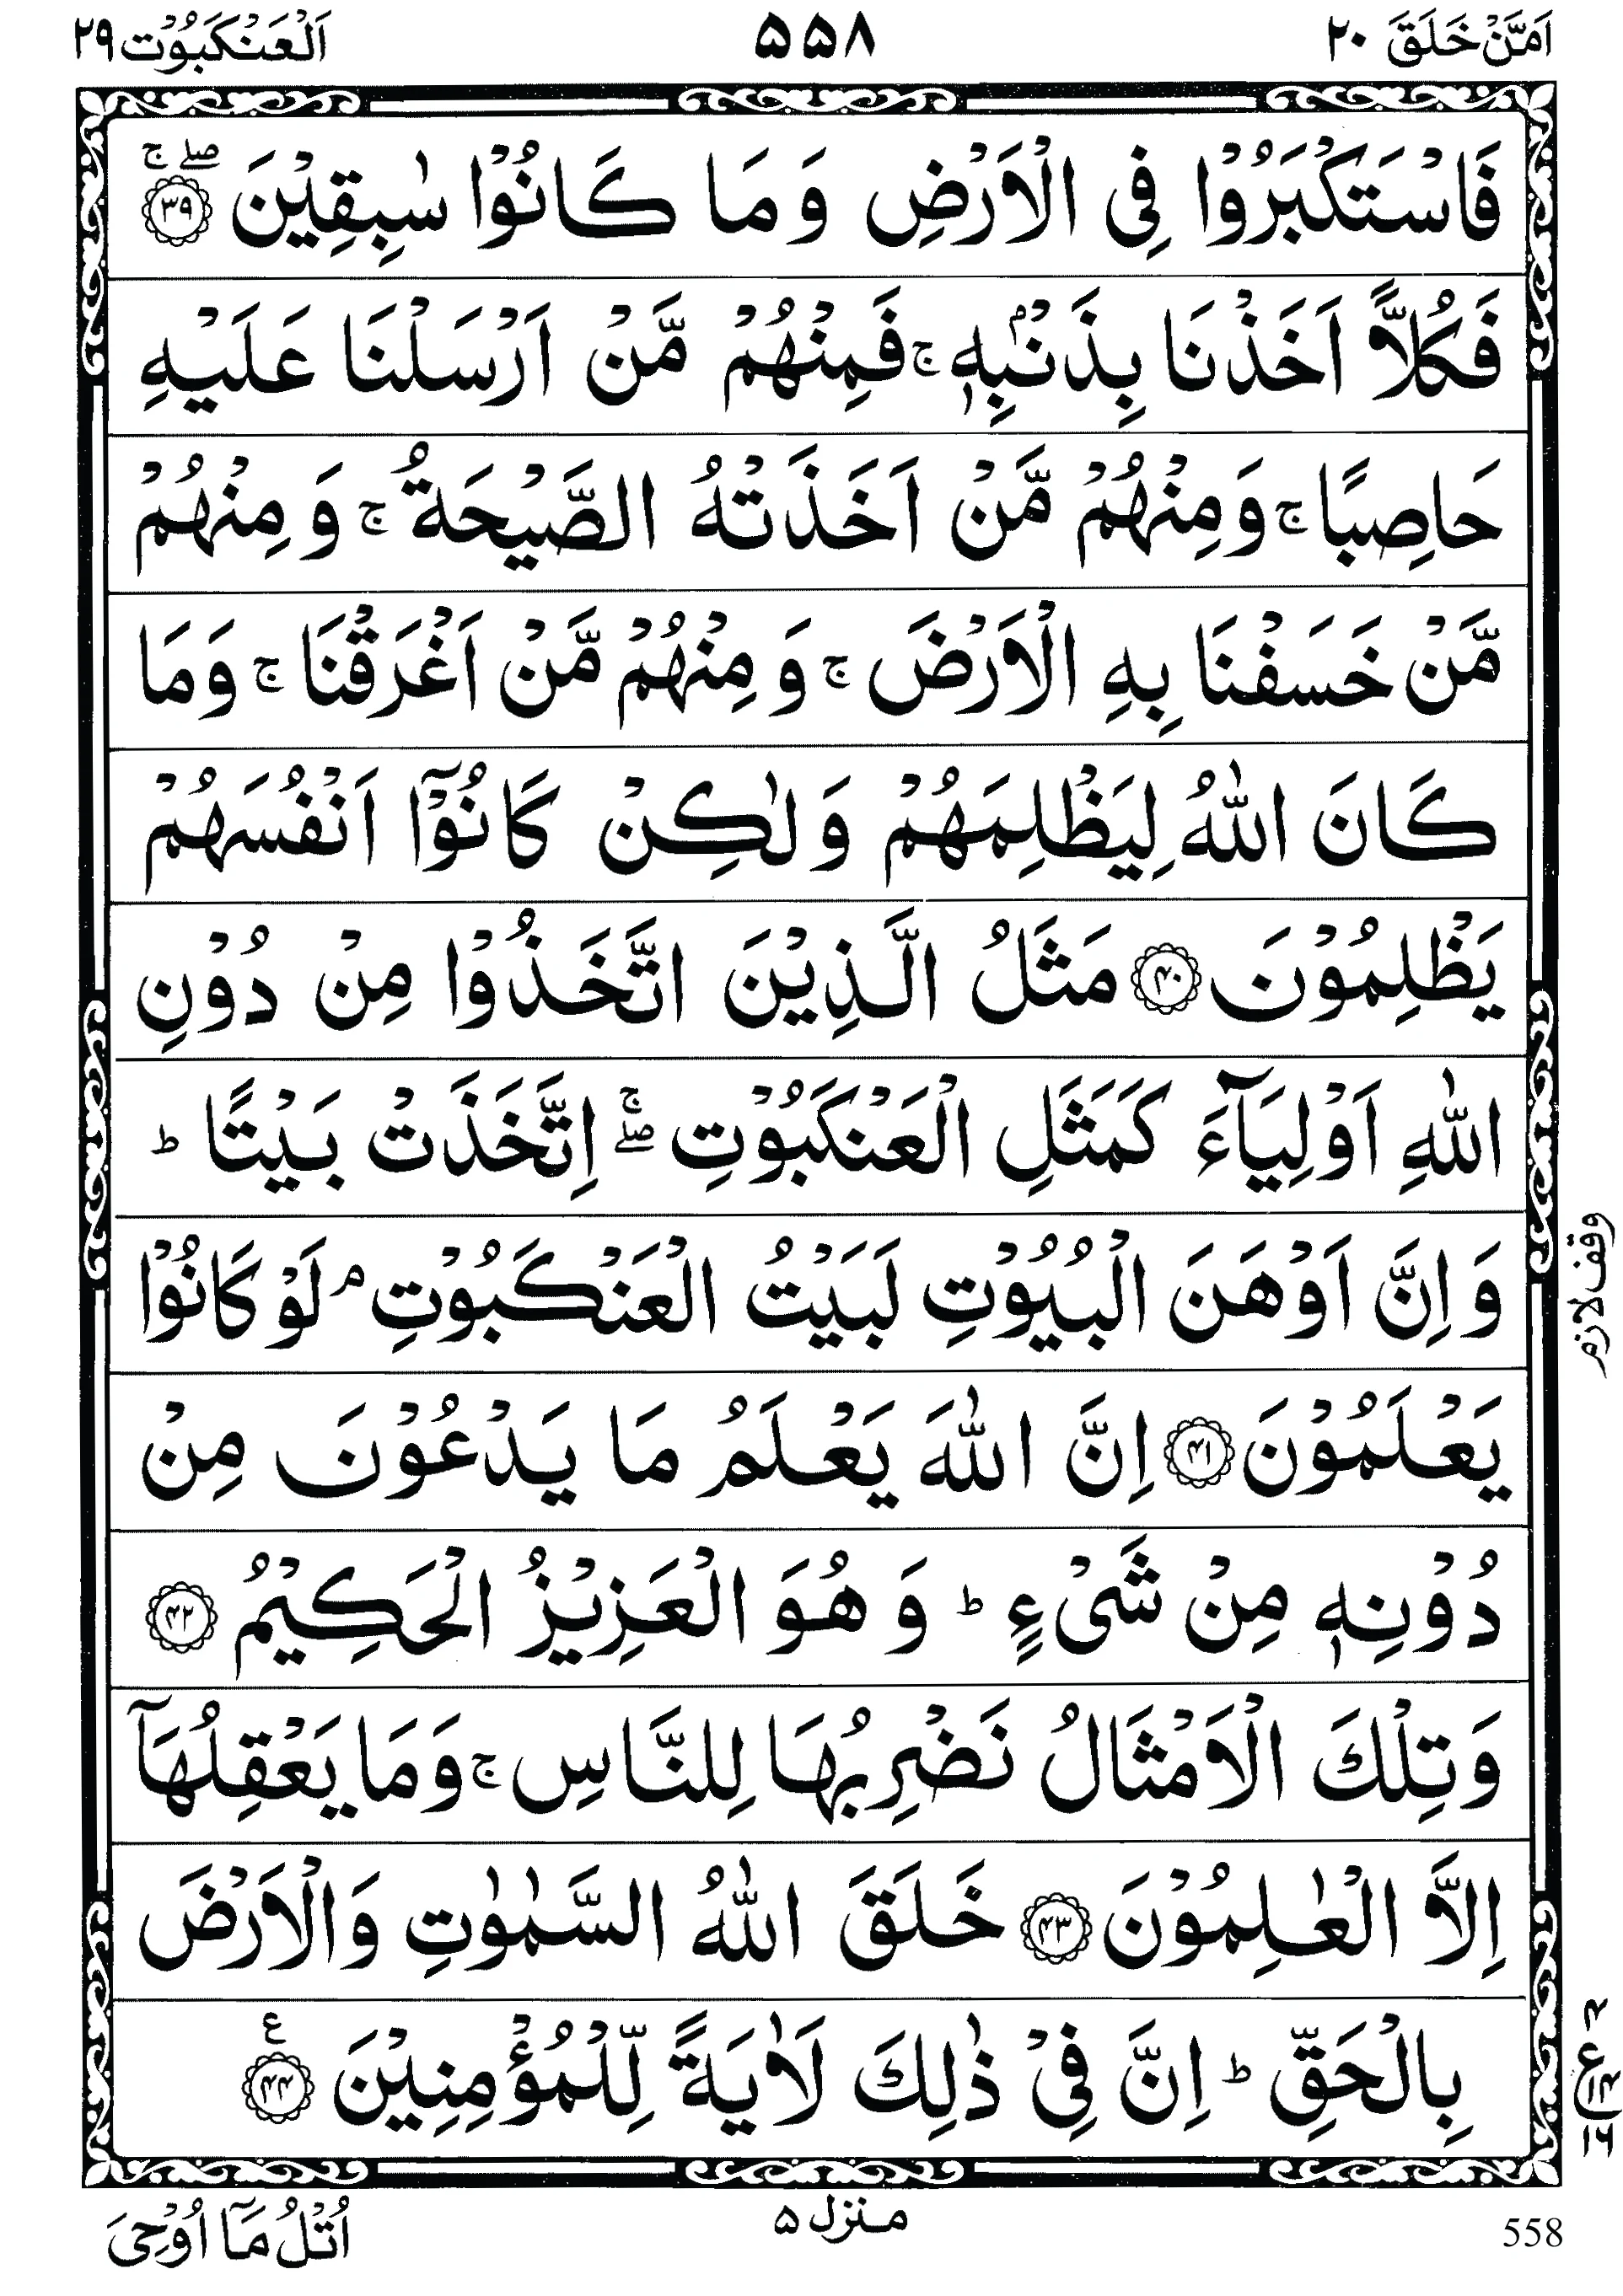 اَمَّنْ خَلَقَ ٢٠ ۵۵۸ اَلْعَنْكَبُوْت ٢٩
فَاسْتَكْبَرُوْا فِى الْاَرْضِ وَ مَا كَانُوْا سٰبِقِيْنَ ۖۚ ﴿۳۹﴾
فَكُلًّا اَخَذْنَا بِذَنْۢبِهٖ ۚ فَمِنْهُمْ مَّنْ اَرْسَلْنَا عَلَيْهِ
حَاصِبًا ۚ وَمِنْهُمْ مَّنْ اَخَذَتْهُ الصَّيْحَةُ ۚ وَ مِنْهُمْ
مَّنْ خَسَفْنَا بِهِ الْاَرْضَ ۚ وَ مِنْهُمْ مَّنْ اَغْرَقْنَا ۚ وَمَا
كَانَ اللّٰهُ لِيَظْلِمَهُمْ وَ لٰكِنْ كَانُوْۤا اَنْفُسَهُمْ
يَظْلِمُوْنَ ﴿۴۰﴾ مَثَلُ الَّذِيْنَ اتَّخَذُوْا مِنْ دُوْنِ
اللّٰهِ اَوْلِيَآءَ كَمَثَلِ الْعَنْكَبُوْتِ ۖۚ اِتَّخَذَتْ بَيْتًا ؕ
وَ اِنَّ اَوْهَنَ الْبُيُوْتِ لَبَيْتُ الْعَنْكَبُوْتِ ۘ لَوْ كَانُوْا
يَعْلَمُوْنَ ﴿۴۱﴾ اِنَّ اللّٰهَ يَعْلَمُ مَا يَدْعُوْنَ مِنْ
دُوْنِهٖ مِنْ شَىْءٍ ؕ وَ هُوَ الْعَزِيْزُ الْحَكِيْمُ ﴿۴۲﴾
وَ تِلْكَ الْاَمْثَالُ نَضْرِبُهَا لِلنَّاسِ ۚ وَمَا يَعْقِلُهَاۤ
اِلَّا الْعٰلِمُوْنَ ﴿۴۳﴾ خَلَقَ اللّٰهُ السَّمٰوٰتِ وَالْاَرْضَ
بِالْحَقِّ ؕ اِنَّ فِىْ ذٰلِكَ لَاٰيَةً لِّلْمُؤْمِنِيْنَ ﴿۴۴﴾ ع
وقف لازم
اُتْلُ مَاۤ اُوْحِىَ منزل ۵ 558